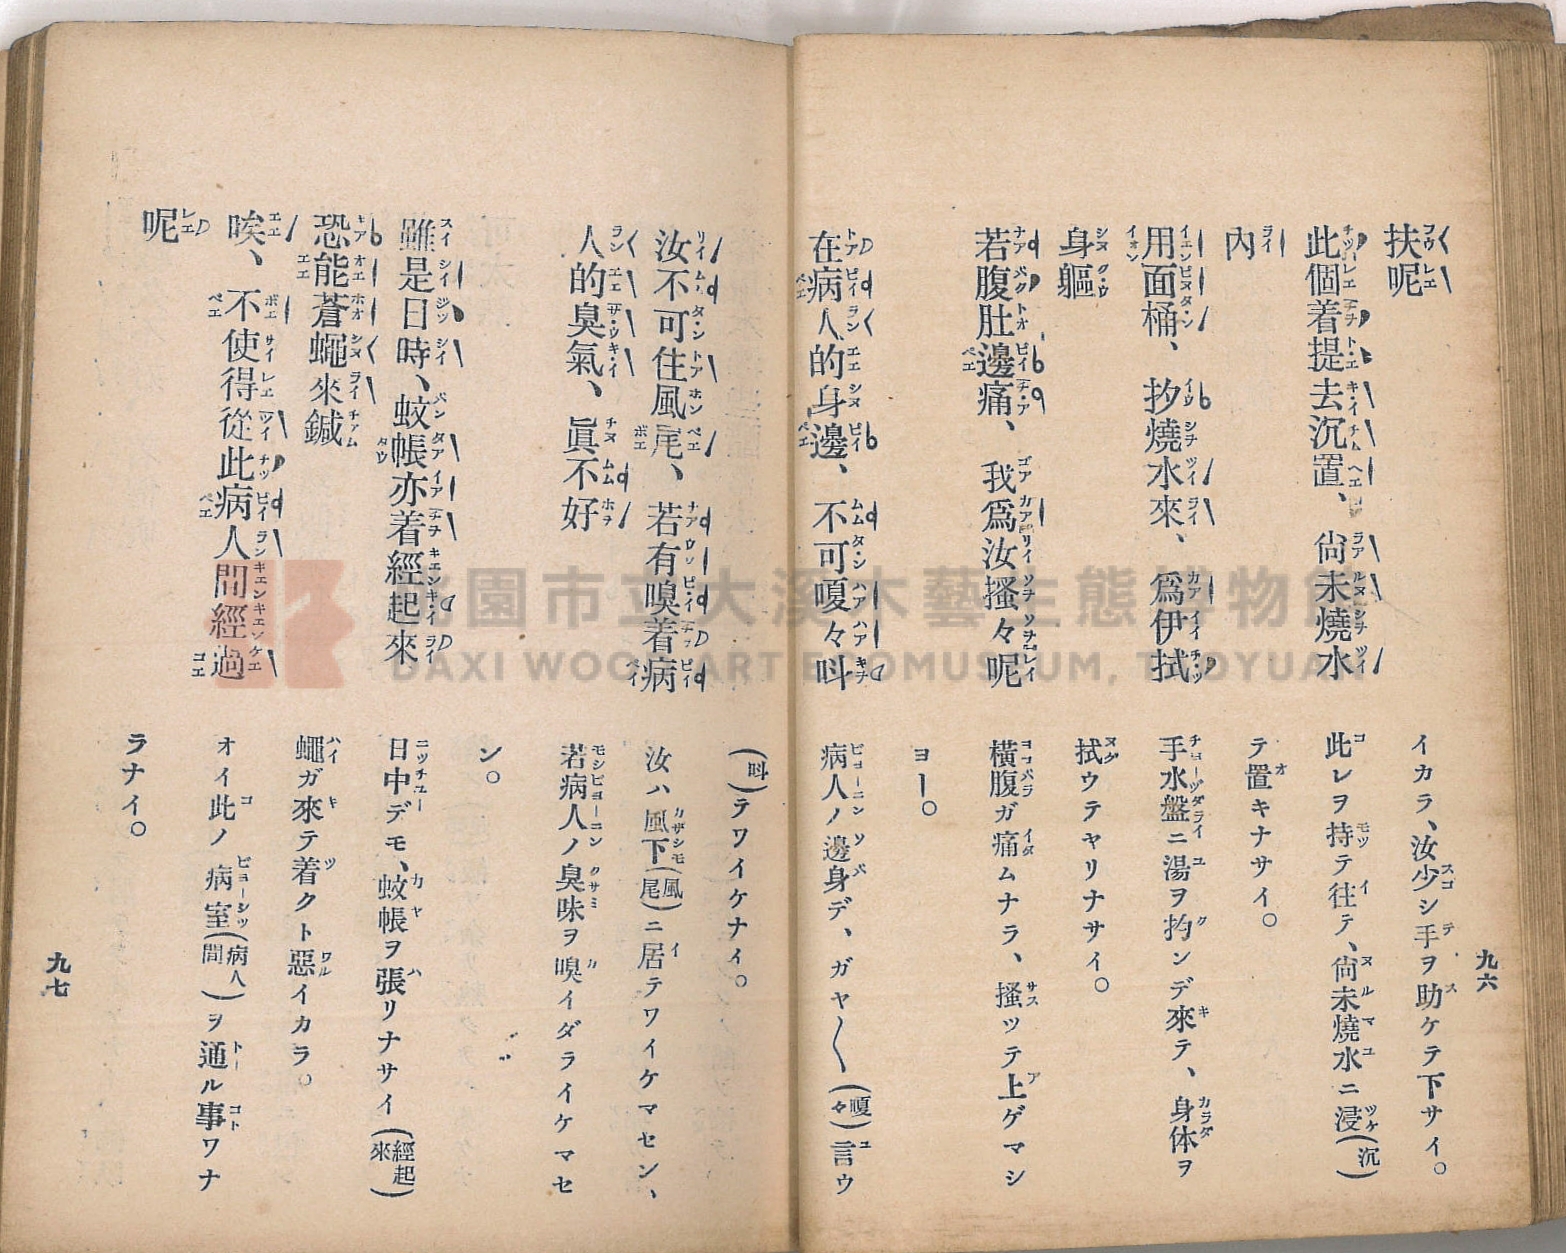 扶呢
イカラ、汝少シ手ヲ助ケテ下サイ。
此個着提去沉置、尙未燒水
此レヲ持テ往テ、尙未燒水ニ浸(沉)
內
テ置キナサイ。
用面桶、抄燒水來、爲伊拭
手水盤ニ湯ヲ抣ンデ來テ、身体ヲ
身軀
拭ウテヤリナサイ。
若腹肚邊痛、我爲汝搔々呢
橫腹ガ痛ムナラ、搔ツテ上ゲマシ
ヨー。
在病人的身邊、不可嗄々呌
病人ノ邊身デ、ガヤ〳〵(嗄々)言ウ
九六
(呌)テワイケナイ。
汝不可住風尾、若有嗅着病
汝ハ風下(風尾)ニ居テワイケマセン、
人的臭氣、眞不好
若病人ノ臭味ヲ嗅イダライケマセ
ン。
雖是日時、蚊帳亦着經起來
日中デモ、蚊帳ヲ張リナサイ(經起來)
恐能蒼蠅來鍼
蠅ガ來テ着クト惡イカラ。
唉、不使得從此病人間經過
オイ此ノ病室(病人間)ヲ通ル事ワナ
呢
ラナイ。
九七
桃園市立大溪木藝生態博物館
DAXI WOOD ART ECOMUSEUM, TAOYUAN